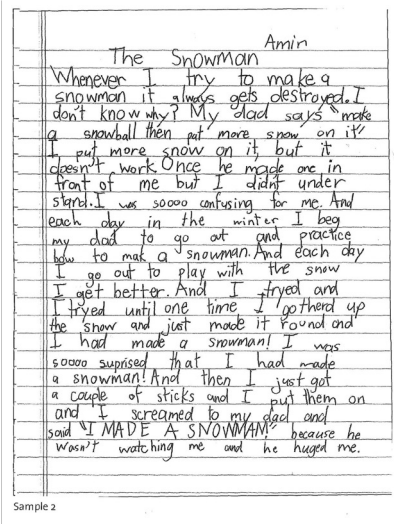 Amin
The Snowman
Whenever I try to make a
snowman it always gets destroyed. I
don't know why? My dad says "make
a snowball then pat more snow on it"
I put more snow on it, but it
doesn't work. Once he made one in
front of me but I didn't under
stand. I was soooo confusing for me. And
each day in the winter I beg
my dad to go out and practice
how to mak a snowman. And each day
I go out to play with the snow
I get better. And I tryed and
I tryed until one time I gotherd up
the snow and just made it round and
I had made a snowman! I was
soooo suprised that I had made
a snowman! And then I just got
a couple of sticks and I put them on
and I screamed to my dad and
said "I MADE A SNOWMAN!" because he
wasn't watching me and he huged me.
Sample 2